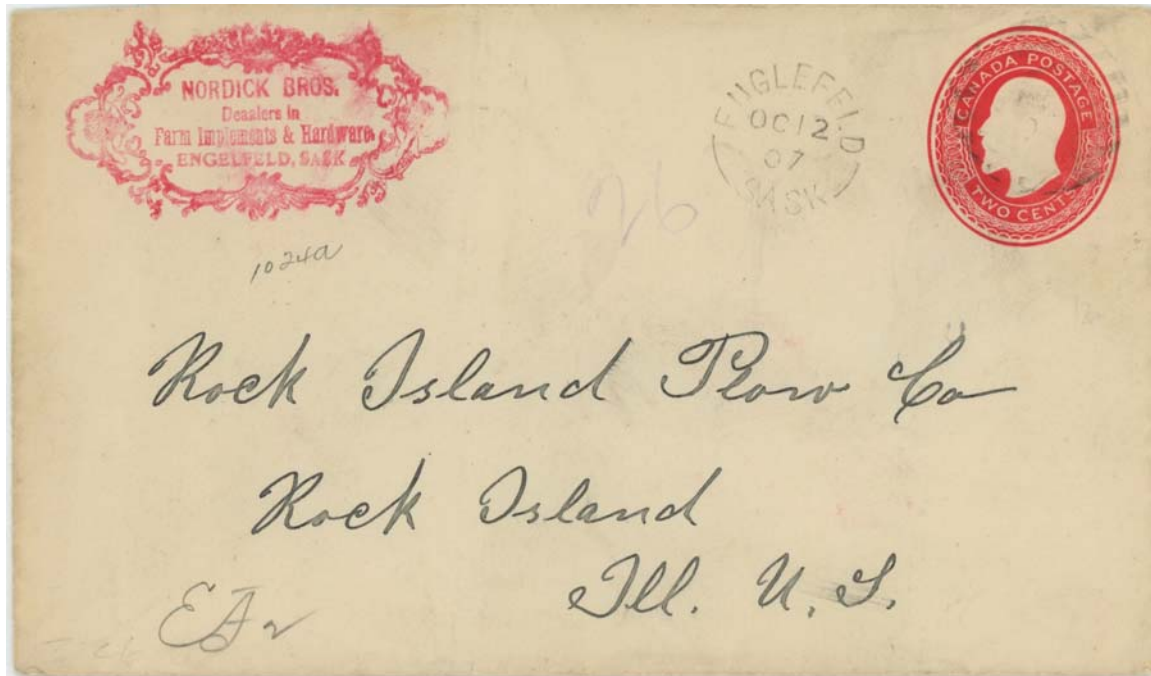 NORDICK BROS.
Deaalers in
Farm Implements & Hardware
ENGELFELD, SASK
ENGLEFELD
OC 12
07
SASK
CANADA POSTAGE
TWO CENTS
26
1024a
Rock Island Plow Co
Rock Island
Ill. U. S.